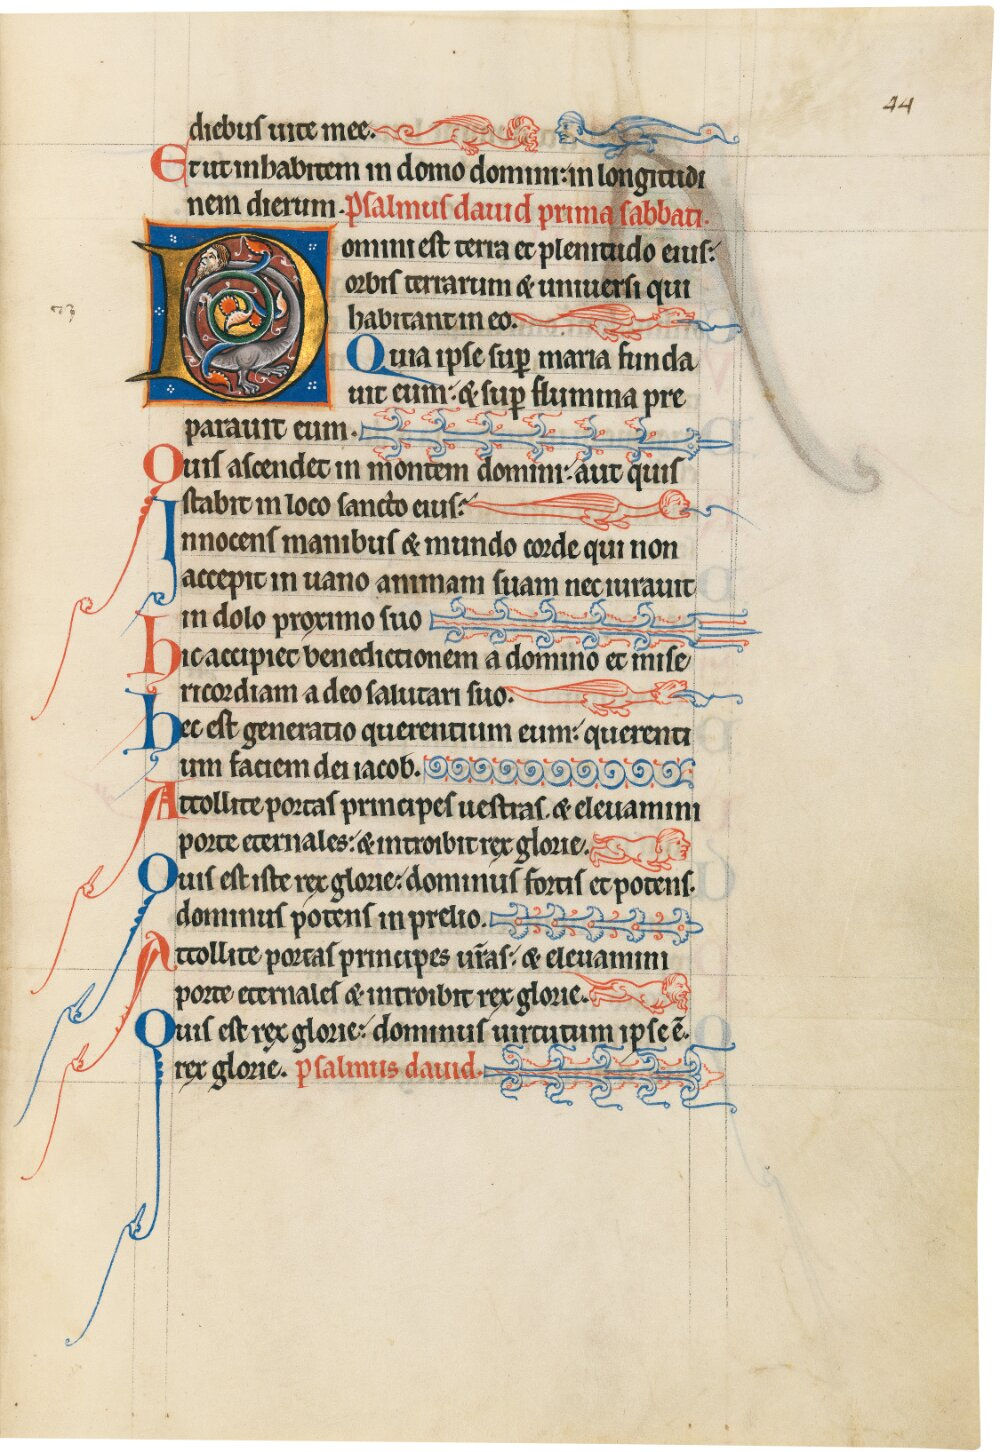 44
diebus uite mee.
Et ut inhabitem in domo domini: in longitudi
nem dierum. Psalmus dauid prima sabbati.
Domini est terra et plenitudo eius:
orbis terrarum & uniuersi qui
habitant in eo.
Quia ipse sup̲ maria funda
uit eum: & sup̲ flumina pre
parauit eum.
Quis ascendet in montem domini: aut quis
stabit in loco sancto eius:
Innocens manibus & mundo corde qui non
accepit in uano animam suam nec iurauit
in dolo proximo suo
hic accipiet benedictionem a domino et mise
ricordiam a deo salutari suo.
hec est generatio querentium eum: querenti
um faciem dei iacob.
Attollite portas principes uestras. & eleuamini
porte eternales: & introibit rex glorie.
Quis est iste rex glorie: dominus fortis et potens.
dominus potens in prelio.
Attollite portas principes ur̃as: & eleuamini
porte eternales & introibit rex glorie.
Quis est rex glorie: dominus uirtutum ipse ē.
rex glorie. psalmus dauid.